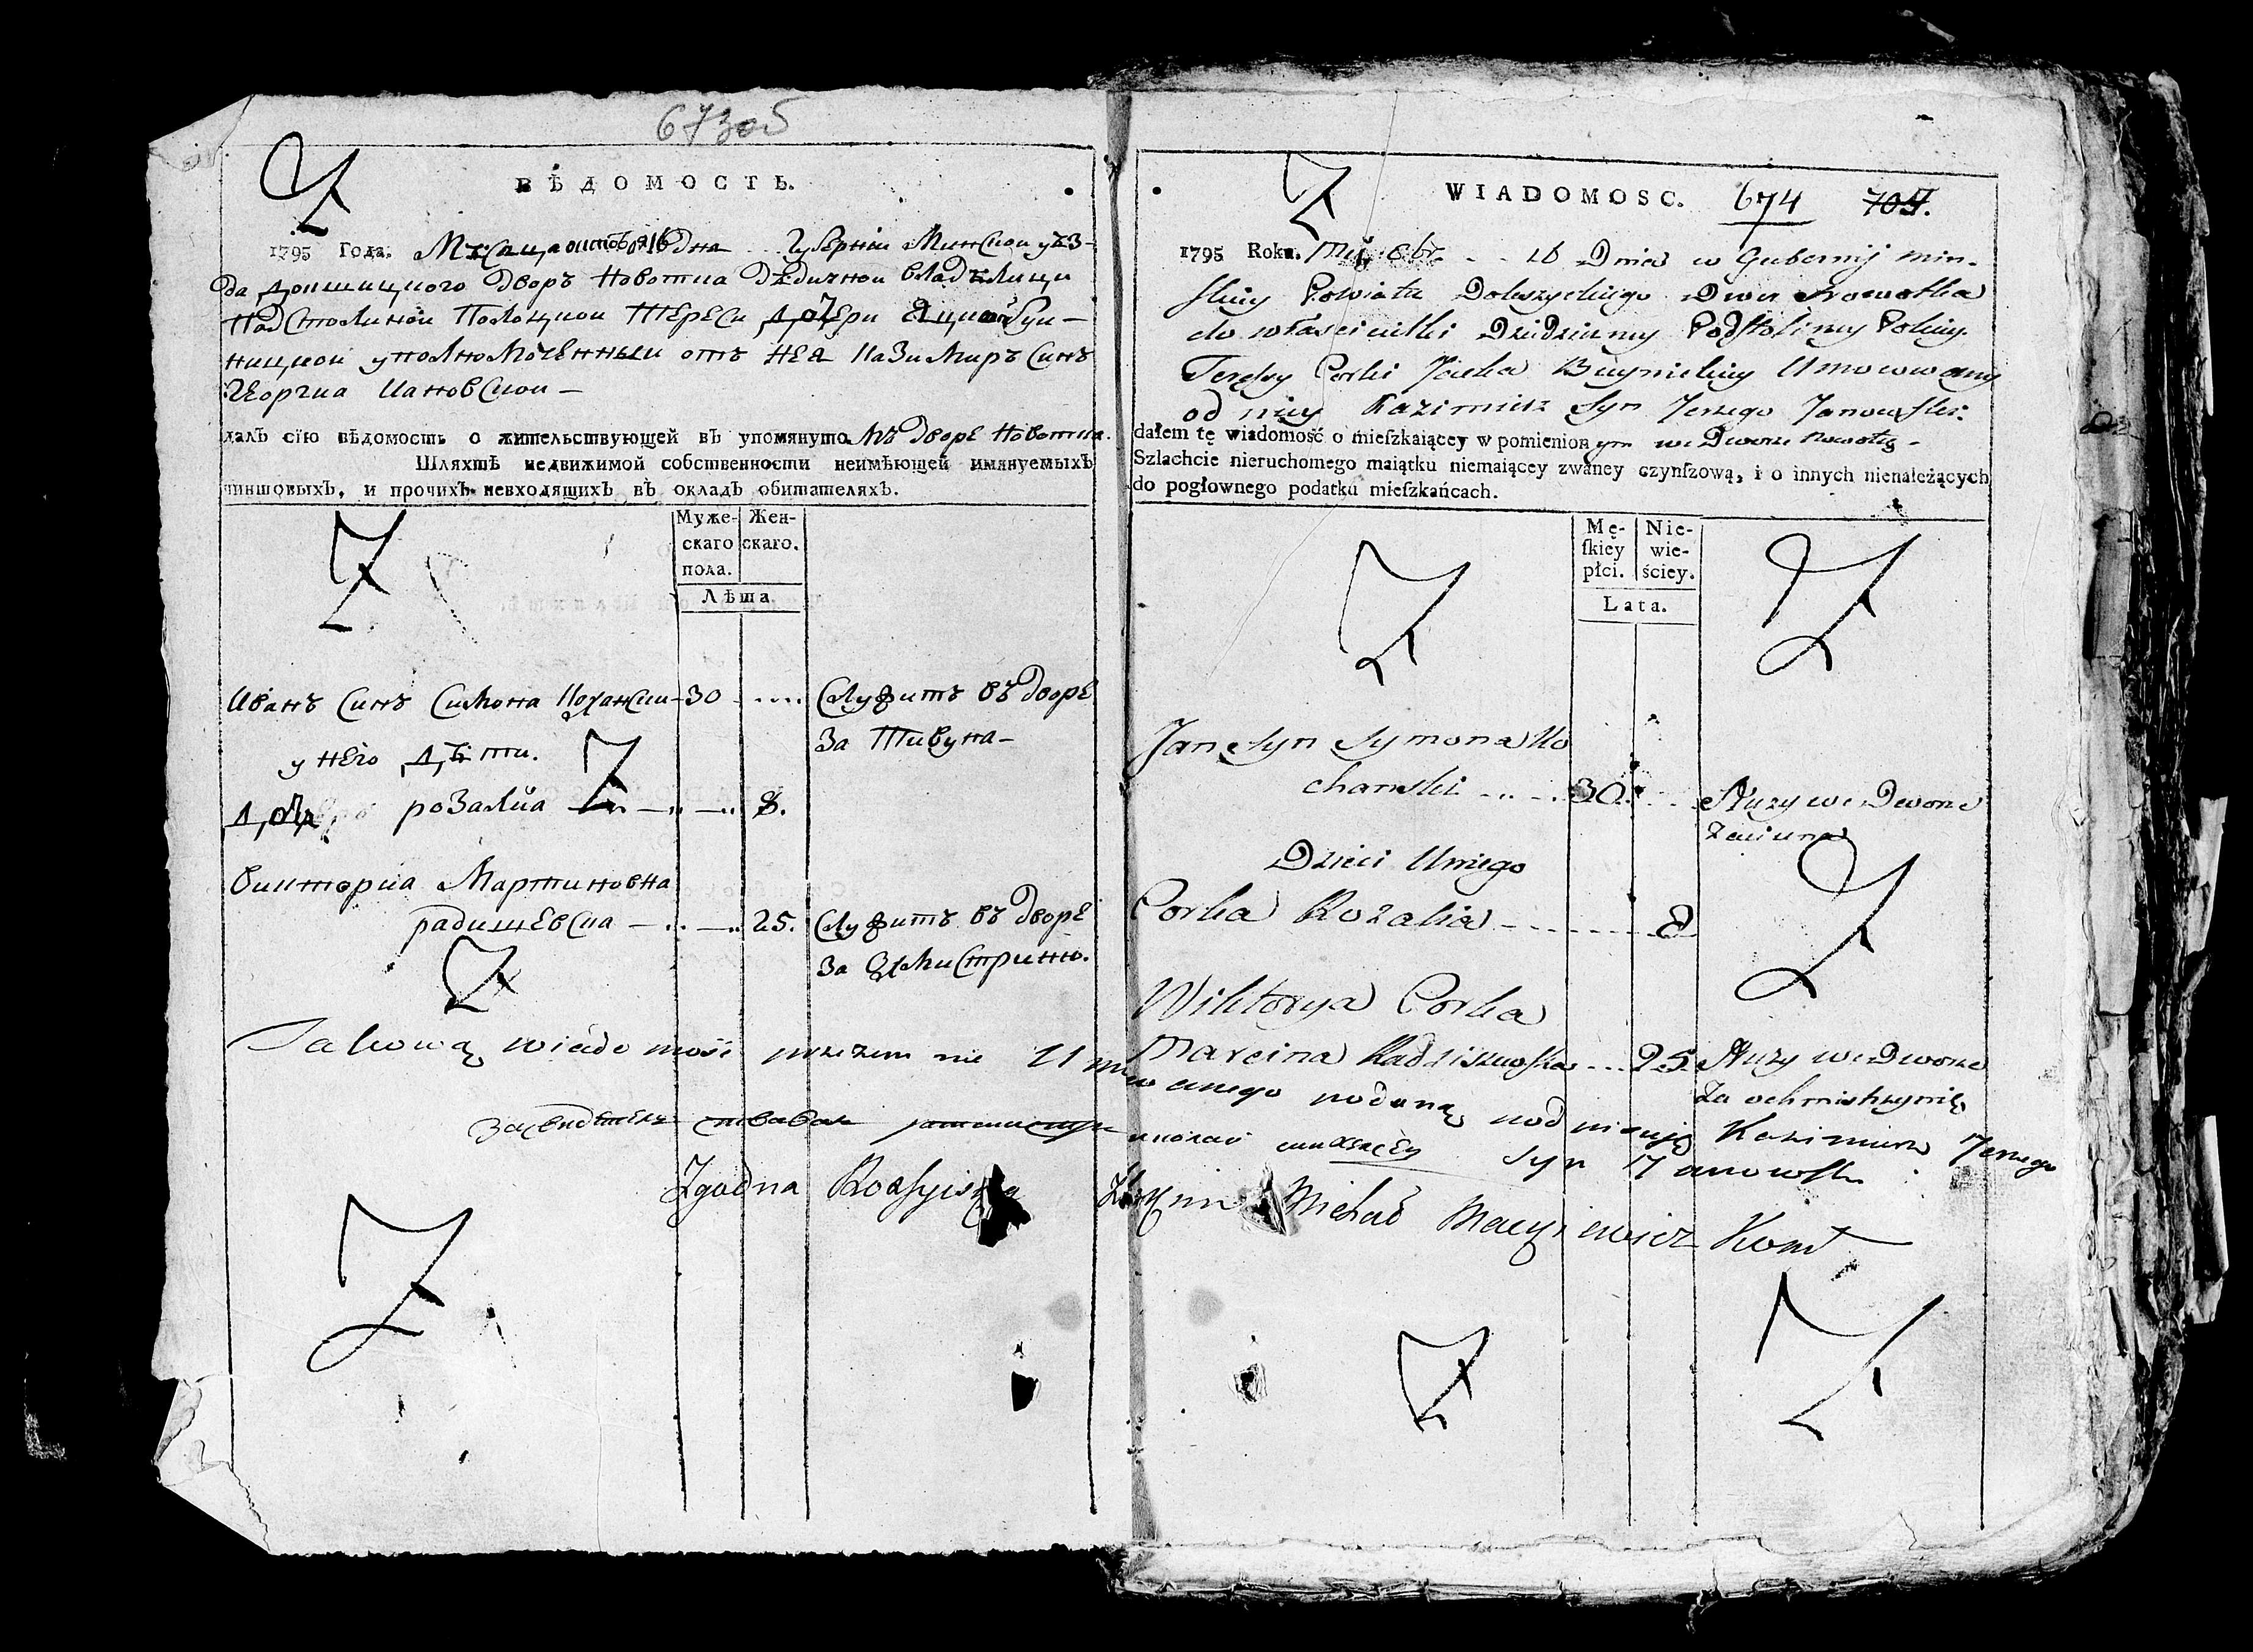 673об
ВѢДОМОСТЬ.
1795 Года. Мѣсаца октобра 16 дна Губерніи Минскои уѣз-
да Докшицкого дворъ Новотка дѣдичнои владѣлици
Подстолинои Полоцкои Тереси дочери Яцка Буй-
ницкои уполномоченныи отъ нея Казимиръ синъ
Георгиа Яновскои —
далъ сїю вѣдомость о жительствующей въ упомянуто мъ дворе Новотка.
Шляхтѣ недвижимой собственности неимѣющей имянуемыхъ
чиншовыхъ, и прочихъ невходящихъ въ окладъ обитателяхъ.
Муже- скаго пола. Жен- скаго.
Лѣта
Иванъ синъ Симона Кохански — 30 ..... Служитъ въ дворе
за Тивуна —
у него дѣти.
дочъ розалиа — 8.
Викториа Мартиновна
радишевска — 25. Служитъ въ дворе
за Охмистриню.
WIADOMOSC. 674 705.
1795 Roku. 16 Dnia w Gubernij Min-
skiey Powiatu Dokszyckiego Dwor Nowotka
do włascicielki Dziedziczney Podstoliney Połckiey
Teresy Corki Jacka Buynickiey Umocowany
od niey Kazimierz Syn Jerzego Janowski:
dałem tę wiadomość o mieſzkaiącey w pomienion ym we Dworze Nowotką -
Szlachcie nieruchomego maiątku niemaiącey zwaney czynſzową, i o innych nienależących
do pogłownego podatku mieſzkańcach.
Mę- ſkiey płci. Nie- wie- ściey.
Lata.
Jan Syn Symona Ko
chanski ..... 30 ..... Słuzy we Dworze
za Ciuna
Dzieci Uniego
Corka Rozalia ..... 8
Wiktorya Corka
Marcina Radziszewska ... 25 Słuzy we Dworze
za ochmistrzynię
Takową wiadomość przezemnie Umocowanego podaną podpisuję Kazimierz Jerzego
syn Janowski
Zgodna Michał Macyiewicz Kom